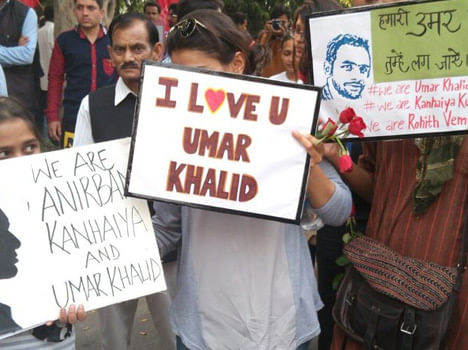 WE ARE
'ANIRBAN
KANHAIYA
AND
UMAR KHALID
I L♥VE U
UMAR
KHALID
हमारी उमर
तुम्हें लग जाये
#we are Umar Khalid
#we are Kanhaiya Ku
we are Rohith Vem